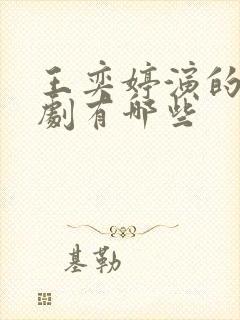 王奕婷演的
劇有哪些
基勒